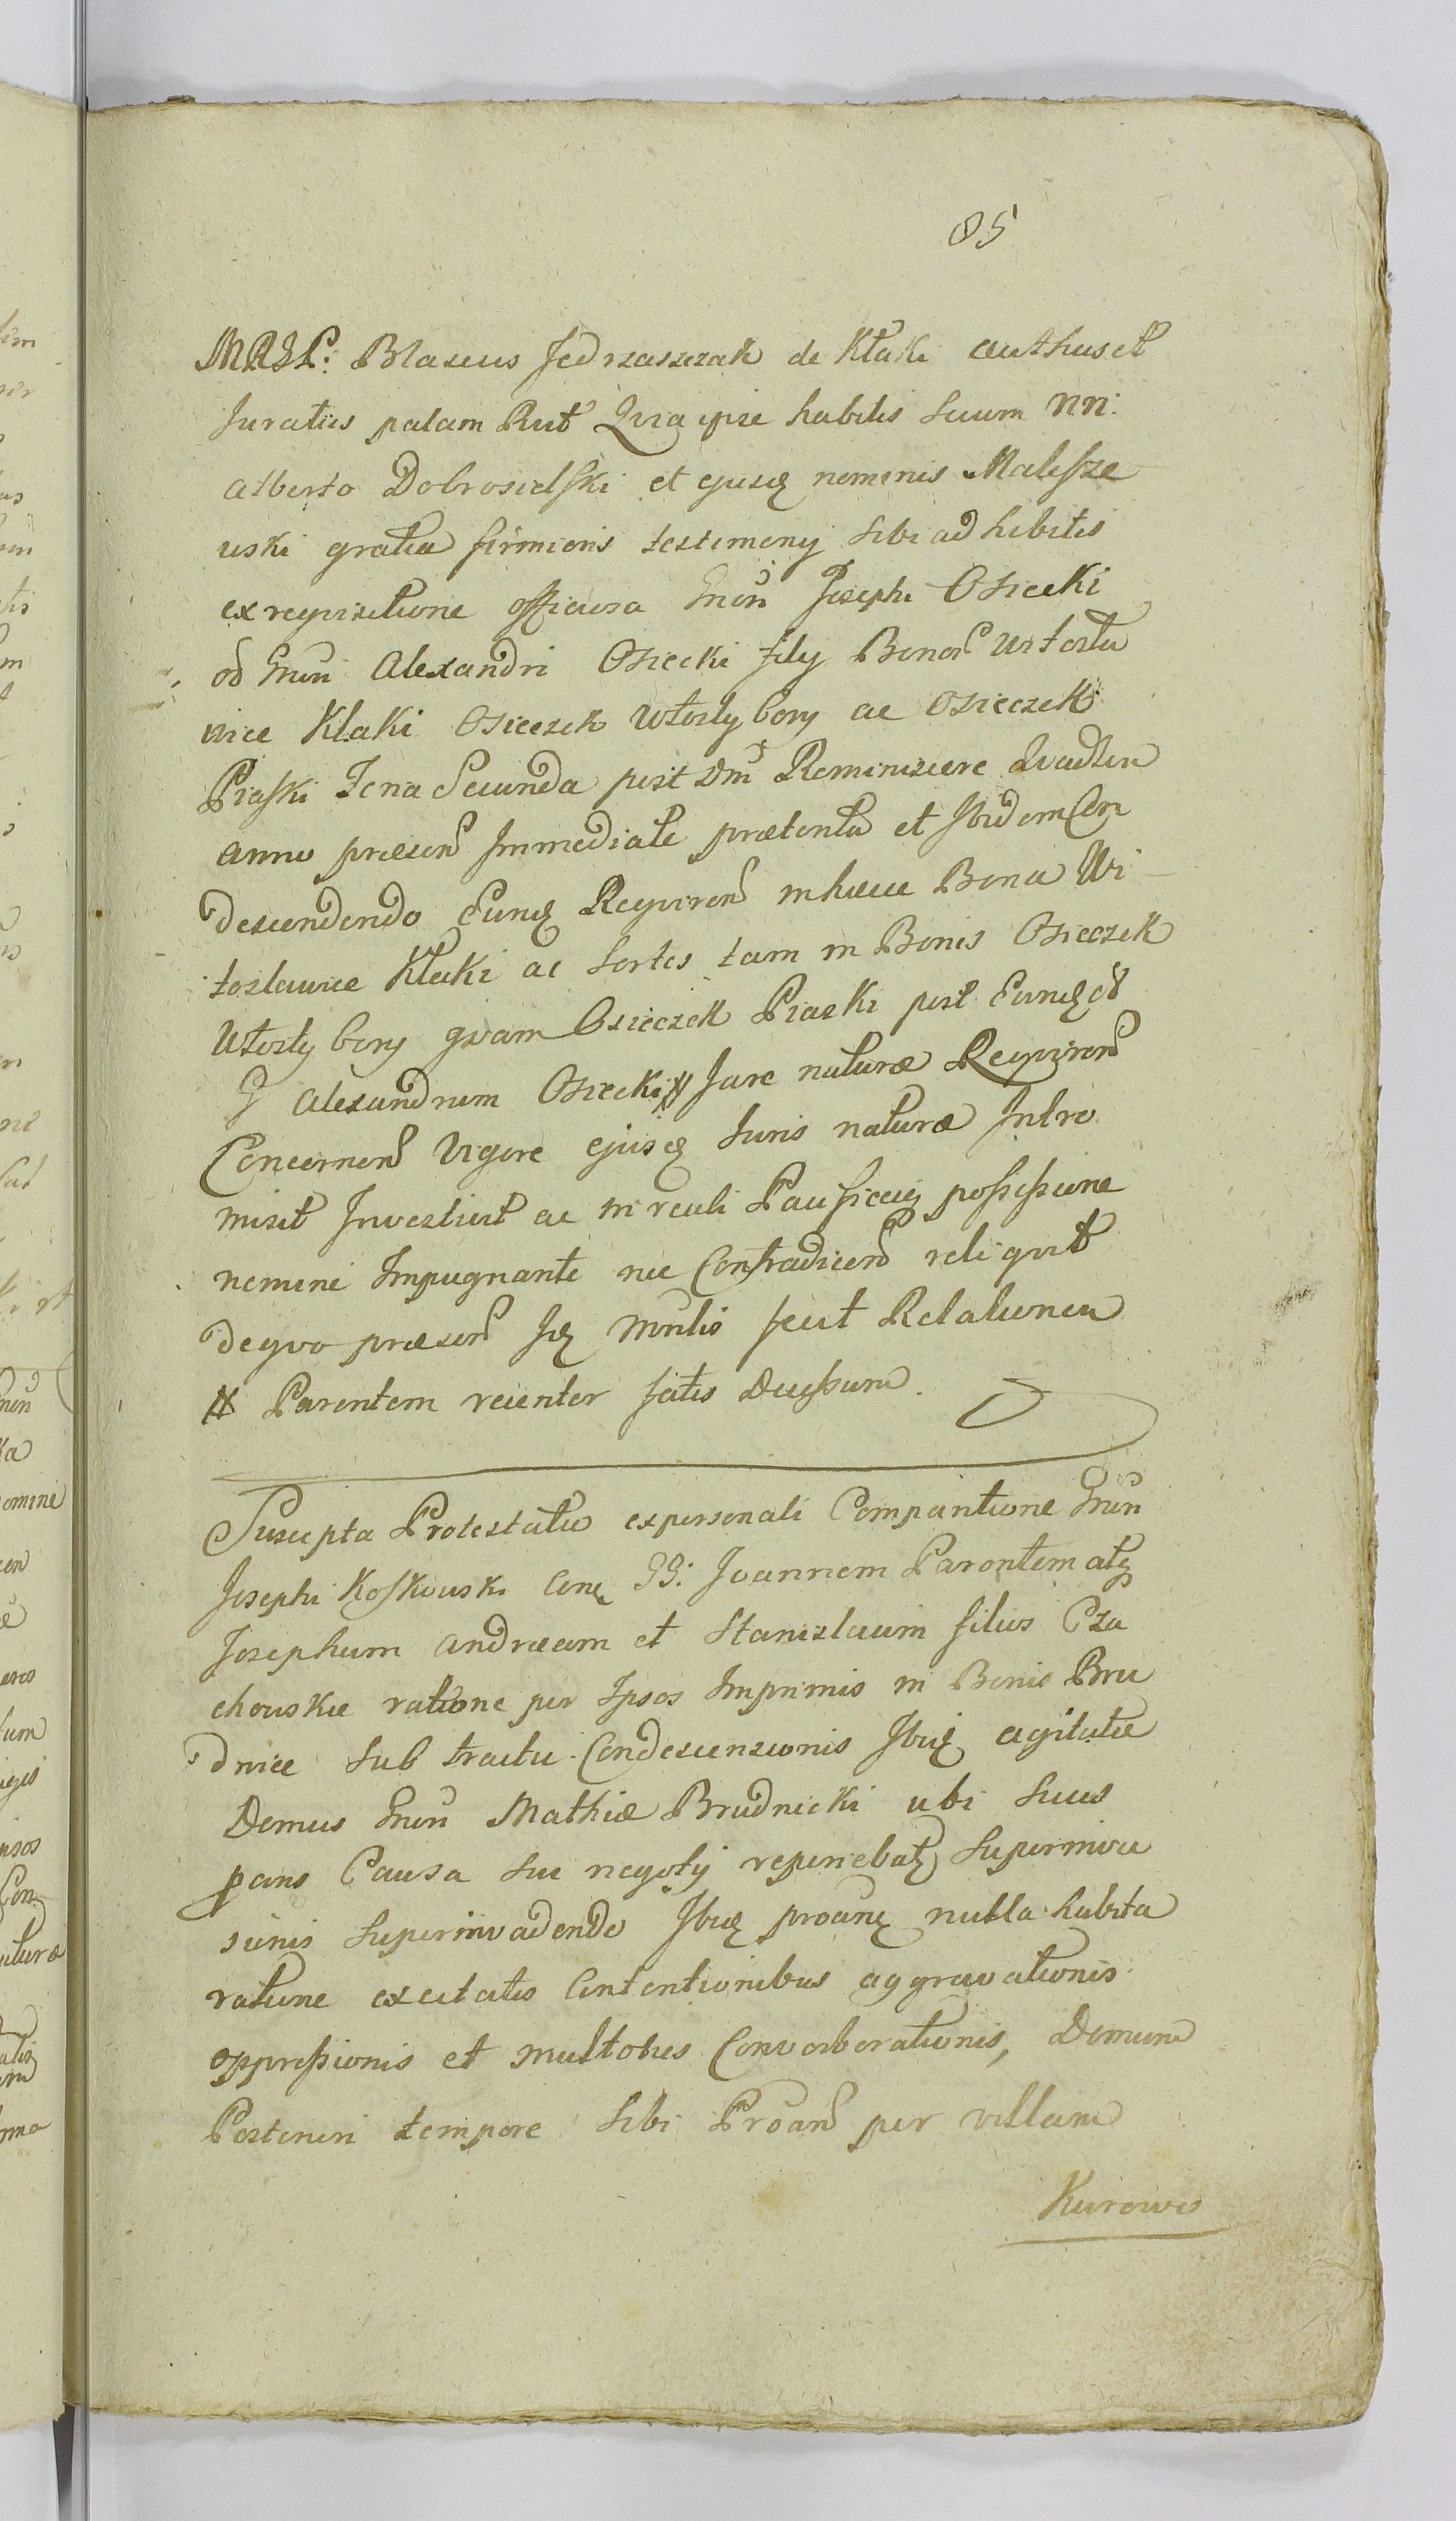 85
MRGL: Blasius Jedrzaszczak de Kłaki authuset
Juratus palam Rut Quia ipse habitis secum nn:
alberto Dobrosielski et ejusq nominis Malesze
uski gratia firmioris testimony sibi adhibitis
ex requisitione officiosa Gnon Josephi Osiecki
od Gnon Alexandri Osiecki fily Bonor Witosla
wice Klaki Osieczek Wtosty bory ac Osieczek
Piaski Feria Secunda post Dm Reminiscere Quadlin
anno præsen Immediate prætenta et Ibidem Con
descendendo Eunq Requiren in hæce Bona Wi
toslawice Kłaki ac sortes tam in Bonis Osieczek
Wtosty bory qvam Osieczek Piaski post Eundq ol
G Alexandrum Osiecki # Jure naturæ Requiren
Concernen Vigore ejusq Juris naturæ Intro
misit Investivit ac in reali Pacificaq possessione
nemine Impugnante nec Contradicen reliquit
de qvo præsen Jq Mntlis fecit Relationem
# Parentem recenter fatis Decessum.
Suscepta Protestatio ex personali Comparitione Gnon
Josephi Koskowski Conq GG: Joannem Parentem atq
Josephum Andream et Stanislaum filios Cza
chowskie ratione per Ipsos Imprimis in Bonis Bru
dnice sub tractu Condescensionis Ibiq agitatæ
Domus Gnon Mathiæ Brudnicki ubi suus
pans Causa sui negoty reperiebatq superinva
sionis superinvadendo Ibiq proanq nulla habita
ratione excitatis Contentionibus aggravationis
oppressionis et multoties Converberationis, Demum
Posteriori tempore sibi Proan per villam
Kurowo